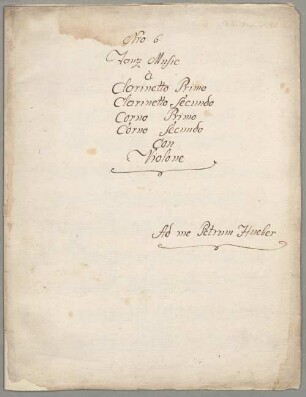 Nro 6
Tanz Music
à
Clarinetto Primo
Clarinetto Secundo
Corno Primo
Corno Secundo
Con
Violone
Ad me Petrum Hueber